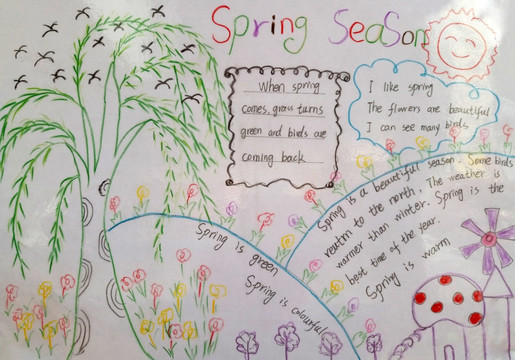 Spring SeaSon
When spring
comes, grass turns
green and birds are
coming back
I like spring
The flowers are beautiful
I can see many birds
Spring is a beautiful season. Some birds
reatrn to the north. The weather is
warmer than winter. Spring is the
best time of the year.
Spring is warm
Spring is green
Spring is colourful